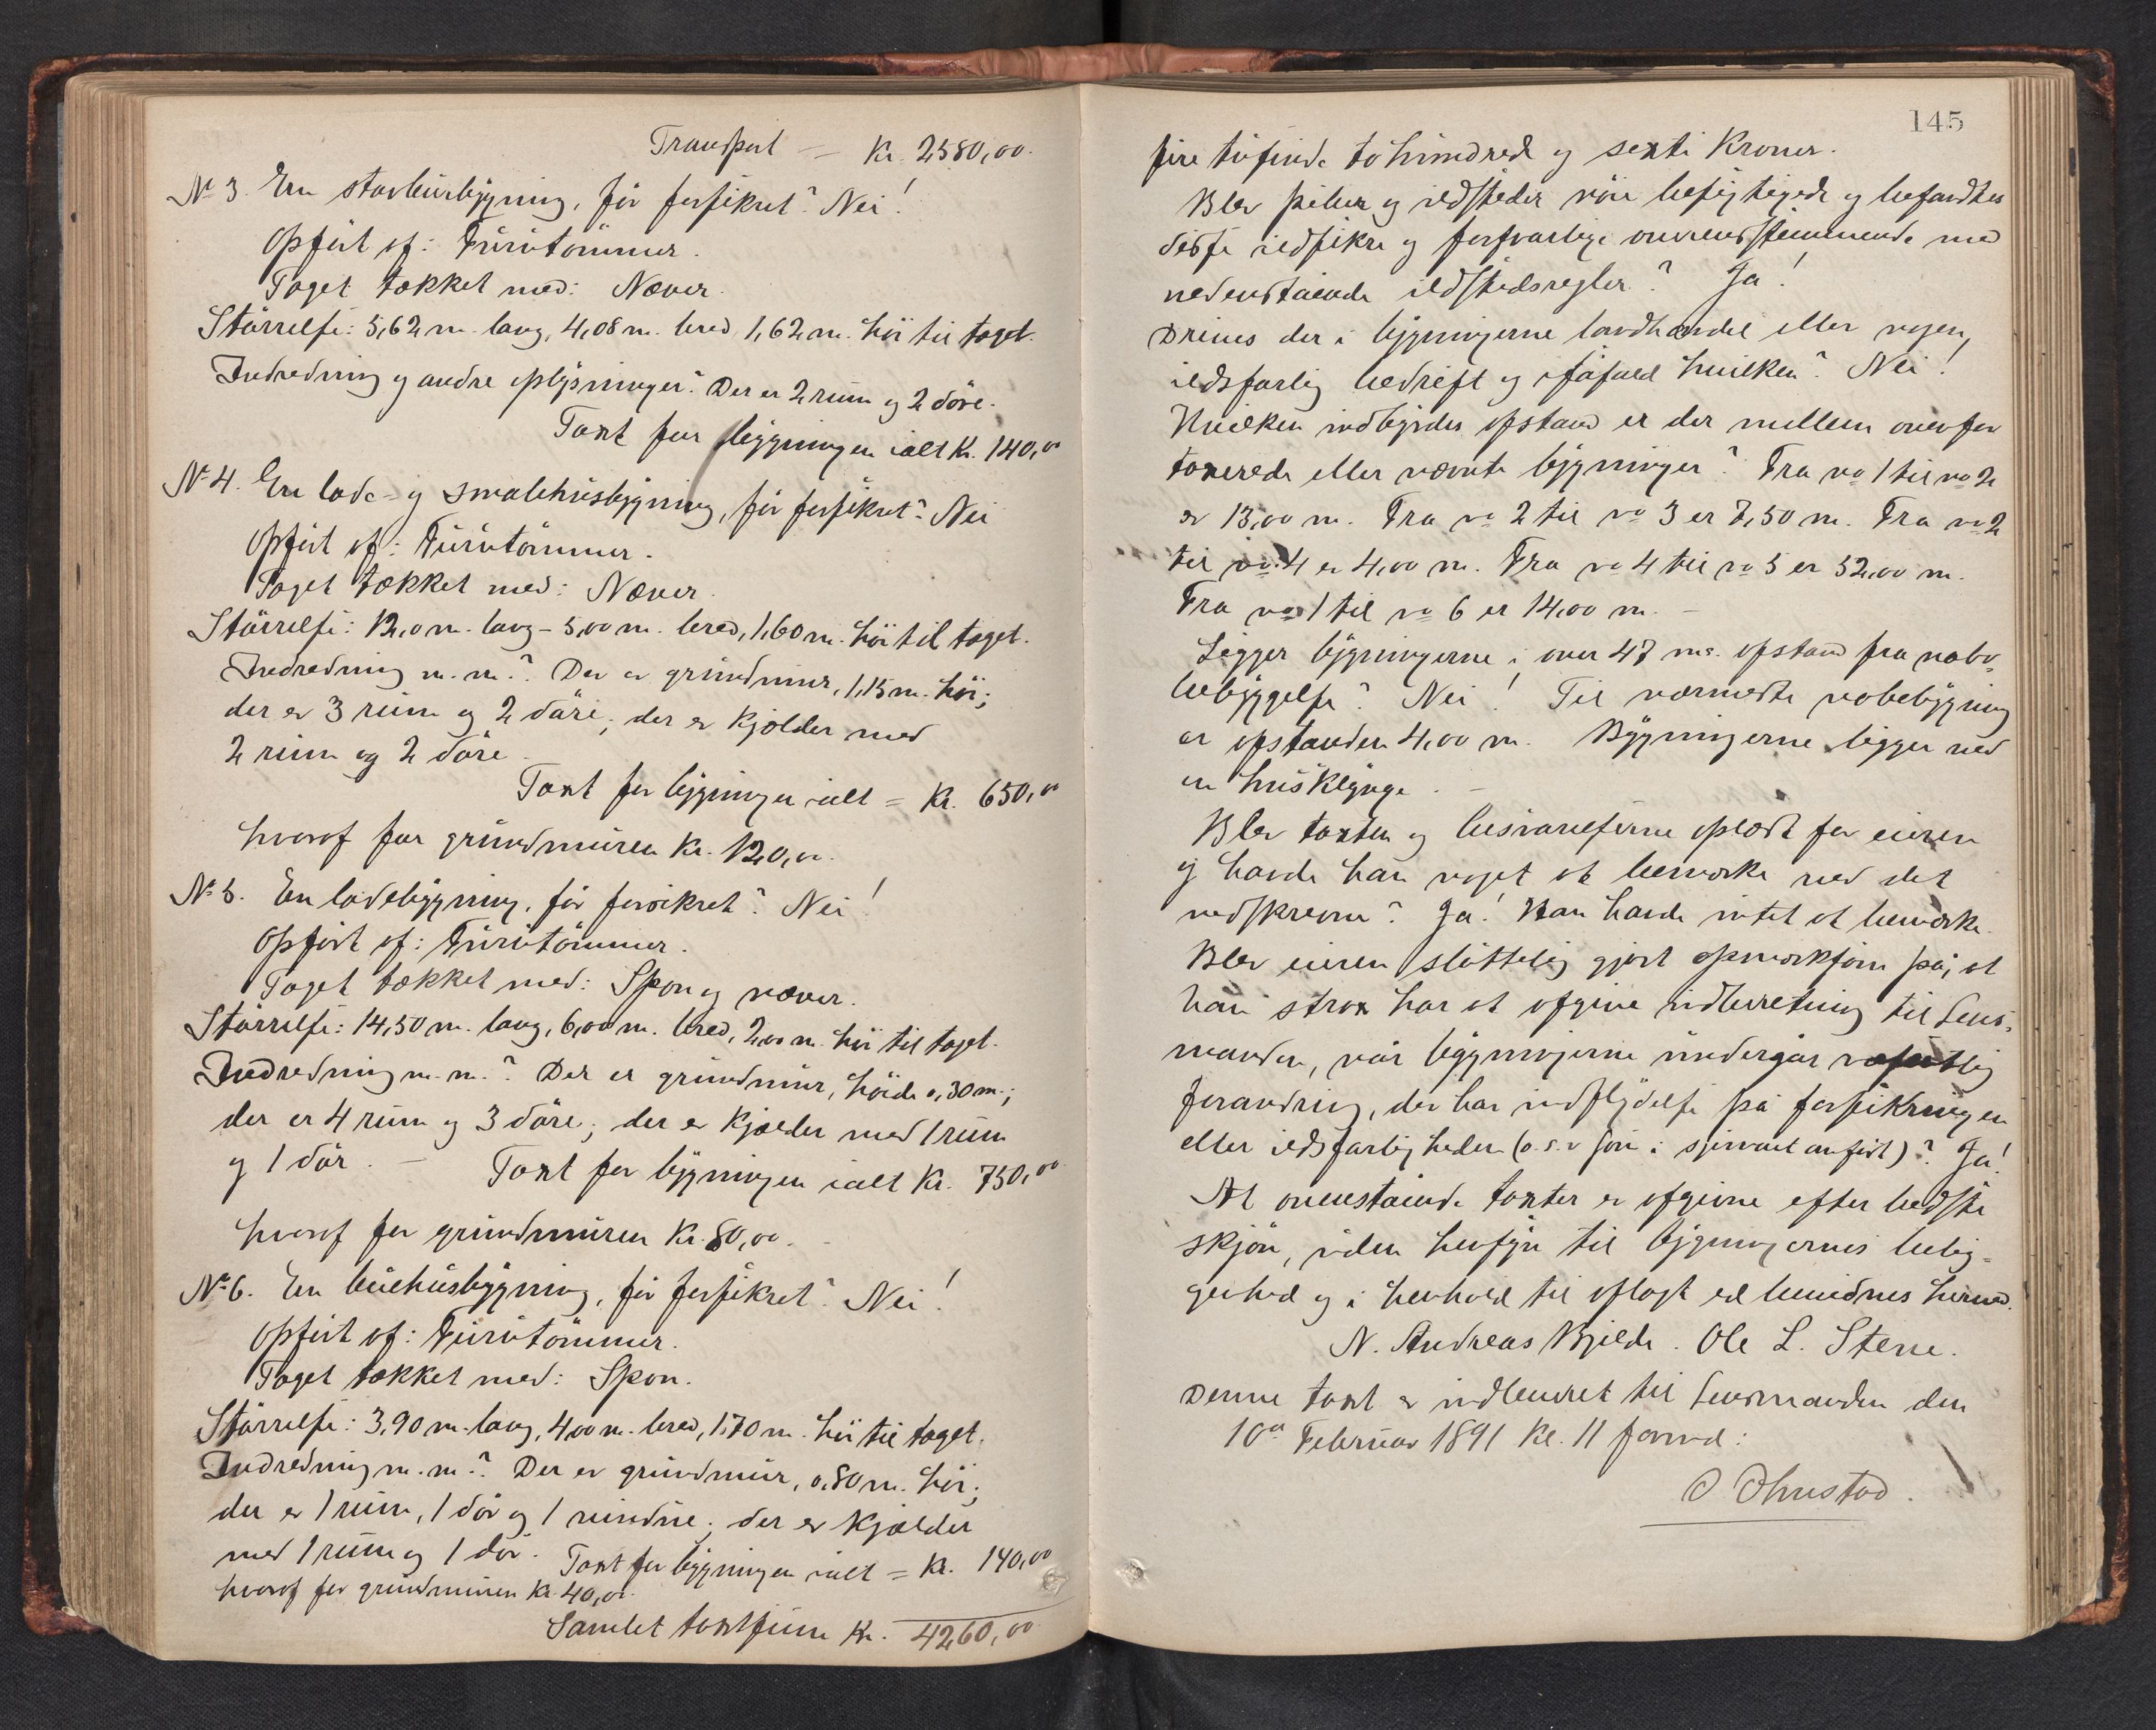 Transport = Kr. 2580,00.
No 3. En stavbursbygning, för forsikret? Nei!
Opfört af: Furutömmer.
Taget tækket med: Næver.
Störrelse: 5,62 m. lang, 4,08 m. bred, 1,62 m. höi til taget.
Indredning og andre oplysninger? Der er 2 rum og 2 döre.
Taxt for bygningen ialt Kr. 140,00
No 4. En lade- og smalehusbygning, för forsikret? Nei
Opfört af: Furutömmer.
Taget tækket med: Næver.
Störrelse: 12,0 m. lang - 5,00 m. bred, 1,60 m. höi til taget.
Indredning m. m.? Der er grundmur, 1,15 m. höi;
der er 3 rum og 2 döre; der er kjælder med
2 rum og 2 döre
Taxt for bygningen ialt = Kr. 650,00
hvoraf for grundmuren Kr. 120,00.
No 5. En ladebygning, för forsikret? Nei!
Opfört af: Furutömmer.
Taget tækket med: Spon og næver.
Störrelse: 14,50 m. lang, 6,00 m. bred, 2,00 m. höi til taget.
Indredning m. m.? Der er grundmur, höide 0,30 m.;
der er 4 rum og 3 döre; der er kjælder med 1 rum
og 1 dör. - Taxt for bygningen ialt Kr. 750,00
hvoraf for grundmuren Kr. 80,00.
No 6. En buehusbygning, för forsikret? Nei!
Opfört af: Furutömmer.
Taget tækket med: Spon.
Störrelse: 3,90 m. lang, 4,00 m. bred, 1,70 m. höi til taget.
Indredning m. m.? Der er grundmur, 0,80 m. höi;
der er 1 rum, 1 dör og 1 vindue; der er kjælder
med 1 rum og 1 dör. Taxt for bygningen ialt = Kr. 140,00
hvoraf for grundmuren Kr. 40,00.
Samlet taxtsum Kr. 4260,00
145
fire tusinde tohundrede og sexti Kroner.
Blev piber og ildsteder nöie besigtigede og befandtes
disse ildsikre og forsvarlige overensstemmende med
nedenstaaende ildstedsregler? Ja!
Drives der i bygningerne landhandel eller nogen
ildsfarlig bedrift og isåfald hvilken? Nei!
Hvilken indbyrdes afstand er der mellem ovenfor
taxerede eller nævnte bygninger? Fra no 1 til no 2
er 13,00 m. Fra no 2 til no 3 er 7,50 m. Fra no 2
til no 4 er 4,00 m. Fra no 4 til no 5 er 52,00 m.
Fra no 1 til no 6 er 14,00 m. -
Ligger bygningerne i over 47 m. afstand fra nabo-
bebyggelse? Nei! Til nærmeste nabobygning
er afstanden 4,00 m. Bygningerne ligger ved
en husklynge. -
Blev taxten og besvarelserne oplæst for eieren
og havde han noget at bemærke ved det
nedskrevne? Ja! Han havde intet at bemærke.
Blev eieren sluttelig gjort opmærksom på, at
han strax har at afgive indberetning til Lens-
manden, når bygningerne undergår væsentlig
forandring, der har indflydelse på forsikringen
eller ildsfarligheden (o. s. v. som i skjemaet anfört)? Ja!
At ovenstående taxter er afgivne efter bedste
skjön, uden hensyn til bygningernes belig-
genhed og i henhold til aflagt ed bevidnes herved.
N. Andreas Bjelde. Ole L. Stene.
Denne taxt er indleveret til Lensmanden den
10de Februar 1891 Kl. 11 formd:
O Ohnstad.